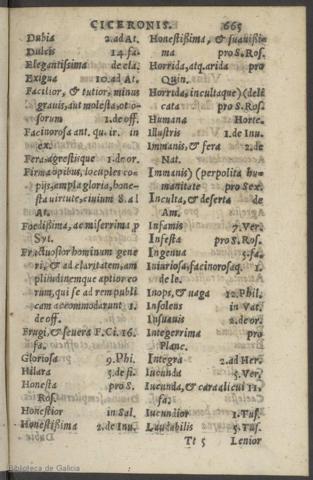 CICERONIS. 665
Dubia 2.ad At.
Dulcis 14.fa.
Elegantissima de cla.
Exigua 10.ad At.
Facilior, & tutior, minus
grauis, aut molesta, otio-
sorum 1.de off.
Facinorosa ant. qu. ir. in
ex.
Fera, agrestique 1.de or.
Firma opibus, locuples co-
pijs, ampla gloria, hone-
sta uirtute, ciuium 8.al
At.
Foedissima, ac miserrima p
Syt.
Fructuosior hominum gene
ri, & ad claritatem, am
plitudinemque aptior eo
rum, qui se ad rem publi
cam accommodarunt 1.
de off.
Frugi, & seuera F.Ci.16.
fa.
Gloriosa 9.Phi.
Hilara 5.de fi.
Honesta pro S.
Ros.
Honestior in Sal.
Honestißima 2.de Inu.
Honestißima, & suauißi-
ma pro S.Ros.
Horrida, atq. arida pro
Quin.
Horrida, incultaque) (deli
cata pro S.Ros.
Humana Horte.
Illustris 1.de Inu.
Immanis, & fera 2.de
Nat.
Immanis) (perpolita hu-
manitate pro Sex.
Inculta, & deserta de
Am.
Infamis 7.Ver.
Infesta pro S.Ros.
Ingenua 5.fa.
Iniuriosa, facinorosaq. 1.
de le.
Inops, & uaga 12.Phil.
Insolens in Vat.
Insuauis 2.de or.
Integerrima pro
Planc.
Integra 2.ad Her.
Iucunda 5.Ver.
Iucunda, & cara alicui 11.
fa.
Iucundior 1.Tus.
Laudabilis 5.Tus.
Tt 5 Lenior
Biblioteca de Galicia